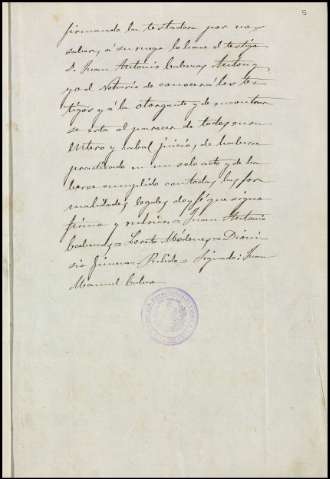 5
firmando la testadora por no
saber, á su ruego lo hace el testigo
D. Juan Antonio
yo el Notario de conocer á los tes-
tigos y á la otorgante y de encontrar
se esta al parecer de todos en su
entero y cabal juicio, de haberse
practicado en un solo acto y de ha
berse cumplido con todas las for
malidades legales, doy fé que signo
firmo y rubrico = Juan Antonio
= Loreto = Dioni
sio = Rubricado = Signado: Juan
Manuel